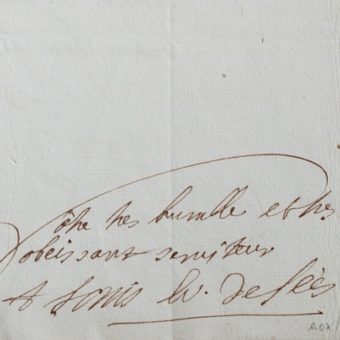 vôtre tres humble et tres
obeissant serviteur
† Louis ev. de Séès